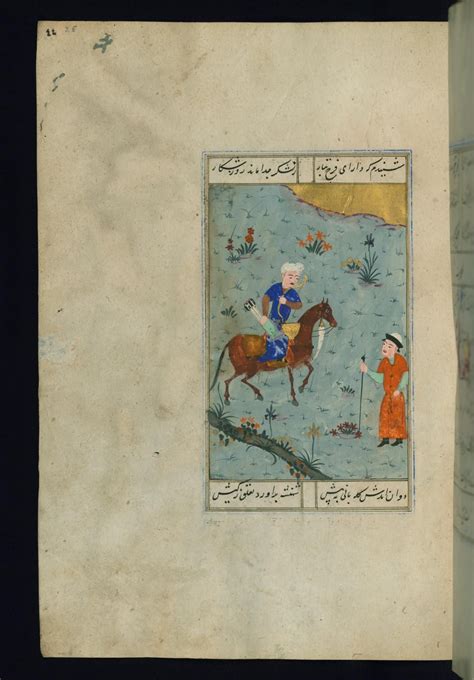 شنیدم که دارای فرخ تبار ز لشکر جدا ماند روز شکار
دوان آمدش گله بانی به پیش شهنشه برآورد تغلق ز کیش